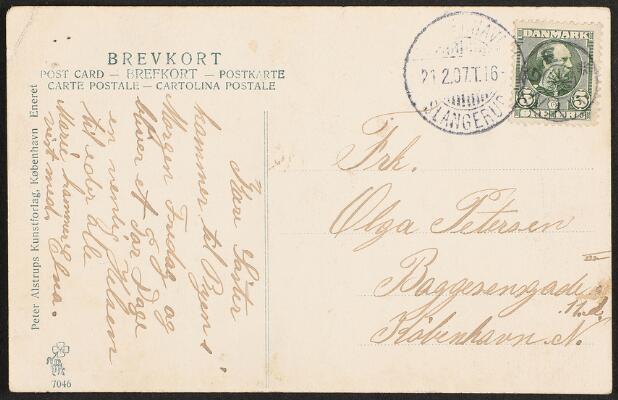 BREVKORT
POST CARD — BREFKORT — POSTKARTE
CARTE POSTALE — CARTOLINA POSTALE
Peter Alstrups Kunstforlag, København Eneret
7046
Kære Søster
kommer til Byen i
Morgen Fredag og
bliver et Par Dage
en venlig Hilsen
til eder alle
Marie kommer
vist med. Elna.
Frk.
Olga Petersen
Baggesensgade
København N.
21.2.07.T.16-
SLANGERUP
DANMARK
5 5